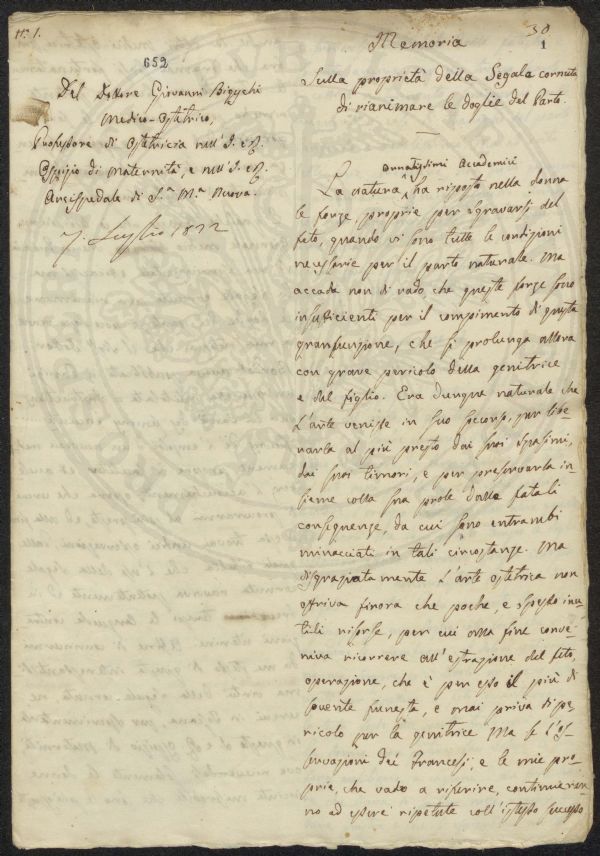 N.º 1.
30
1
652
Del Dottore Giovanni Bigeschi
Medico-Ostetrico,
Professore di Ostetricia nell' I. e R.
Ospizio di Maternità, e nell' I. e R.
Arcispedale di S.ª M.ª Nuova.
7. Luglio 1822
Memoria
Sulla proprietà della Segala cornuta
di rianimare le doglie del Parto.
ornatissimi Academici
La natura ha riposto nella donna
le forze, proprie per sgravarsi del
feto, quando vi sono tutte le condizioni
necessarie per il parto naturale. Ma
accade non di rado, che queste forze sono
insuficienti per il compimento di questa
gran funzione, che si prolunga allora
con grave pericolo della genitrice
e del figlio. Era dunque naturale che
l'arte venisse in suo socorso, per libe-
rarla al più presto dai suoi spasimi,
dai suoi timori, e per preservarla in-
sieme colla sua prole dalle fatali
conseguenze, da cui sono entrambi
minacciati in tali circostanze. Ma
disgraziatamente l'arte ostetrica non
offriva finora che poche, e spesso inu-
tili risorse, per cui alla fine conve-
niva ricorrere all'estrazione del feto,
operazione, che è per esso il più di
sovente funesta, e mai priva di pe-
ricolo per la genitrice Ma se l'os-
servazioni dei Francesi, e le mie pro-
prie, che vado a riferire, continueran-
no ad essere ripetute coll'istesso successo